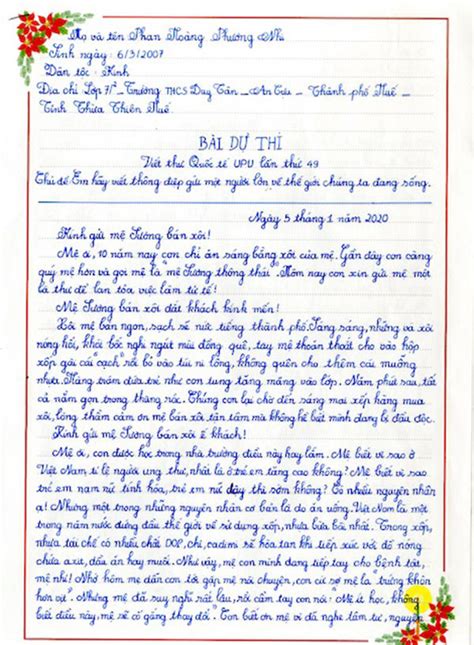 Họ và tên Phan Hoàng Phương Nhi
Sinh ngày : 6/3/2007
Dân tộc : Kinh
Địa chỉ Lớp 7/¹ - Trường THCS Duy Tân - An Cựu - Thành phố Huế -
Tỉnh Thừa Thiên Huế
BÀI DỰ THI
Viết thư Quốc tế UPU lần thứ 49
Chủ đề Em hãy viết thông điệp gửi một người lớn về thế giới chúng ta đang sống.
Ngày 5 tháng 1 năm 2020
Kính gửi mệ Sương bán xôi!
Mệ ơi, 10 năm nay con chỉ ăn sáng bằng xôi của mệ. Gần đây con càng
quý mệ hơn và gọi mệ là "mệ Sương thông thái". Hôm nay con xin gửi mệ một
lá thư để lan tỏa việc làm tử tế!
Mệ Sương bán xôi đắt khách kính mến!
Xôi mệ bán ngon, sạch sẽ nức tiếng thành phố. Sáng sáng, những vá xôi
nóng hổi, khói bốc nghi ngút mùi đồng quê, tay mệ thoăn thoắt cho vào hộp
xốp gói cái "cạch" rồi bỏ vào túi ni lông, không quên cho thêm cái muỗng
nhựa. Hàng trăm đứa trẻ như con tung tăng mang vào lớp. Năm phút sau, tất
cả nằm gọn trong thùng rác. Chúng con lại chờ đến sáng mai xếp hàng mua
xôi, lòng thầm cảm ơn mệ bán xôi tận tâm mà không hề biết mình đang bị đầu độc.
Kính gửi mệ Sương bán xôi ế khách!
Mệ ơi, con được học trong nhà trường điều này hay lắm. Mệ biết vì sao ở
Việt Nam tỉ lệ người ung thư, nhất là ở trẻ em tăng cao không? Mệ biết vì sao
trẻ em nam nữ tính hóa, trẻ em nữ dậy thì sớm không? Có nhiều nguyên nhân
ạ! Nhưng một trong những nguyên nhân cơ bản là do ăn uống. Việt Nam là một
trong năm nước đứng đầu thế giới về sử dụng xốp, nhựa bừa bãi nhất. Trong xốp,
nhựa tái chế có nhiều chất DOP, chì, cadimi sẽ hòa tan khi tiếp xúc với đồ nóng
chứa axit, dầu ăn hay muối. Như vậy, mệ con mình đang tiếp tay cho bệnh tật,
mệ nhỉ! Nhớ hôm mẹ dẫn con tới gặp mệ nói chuyện, con cứ sợ mệ la "trứng khôn
hơn vịt". Nhưng mệ đã suy nghĩ rất lâu, rồi cầm tay con nói: "Mệ ít học, không
biết điều này, mệ sẽ cố gắng thay đổi". Con biết ơn mệ vì đã nghe tâm tư, nguyện